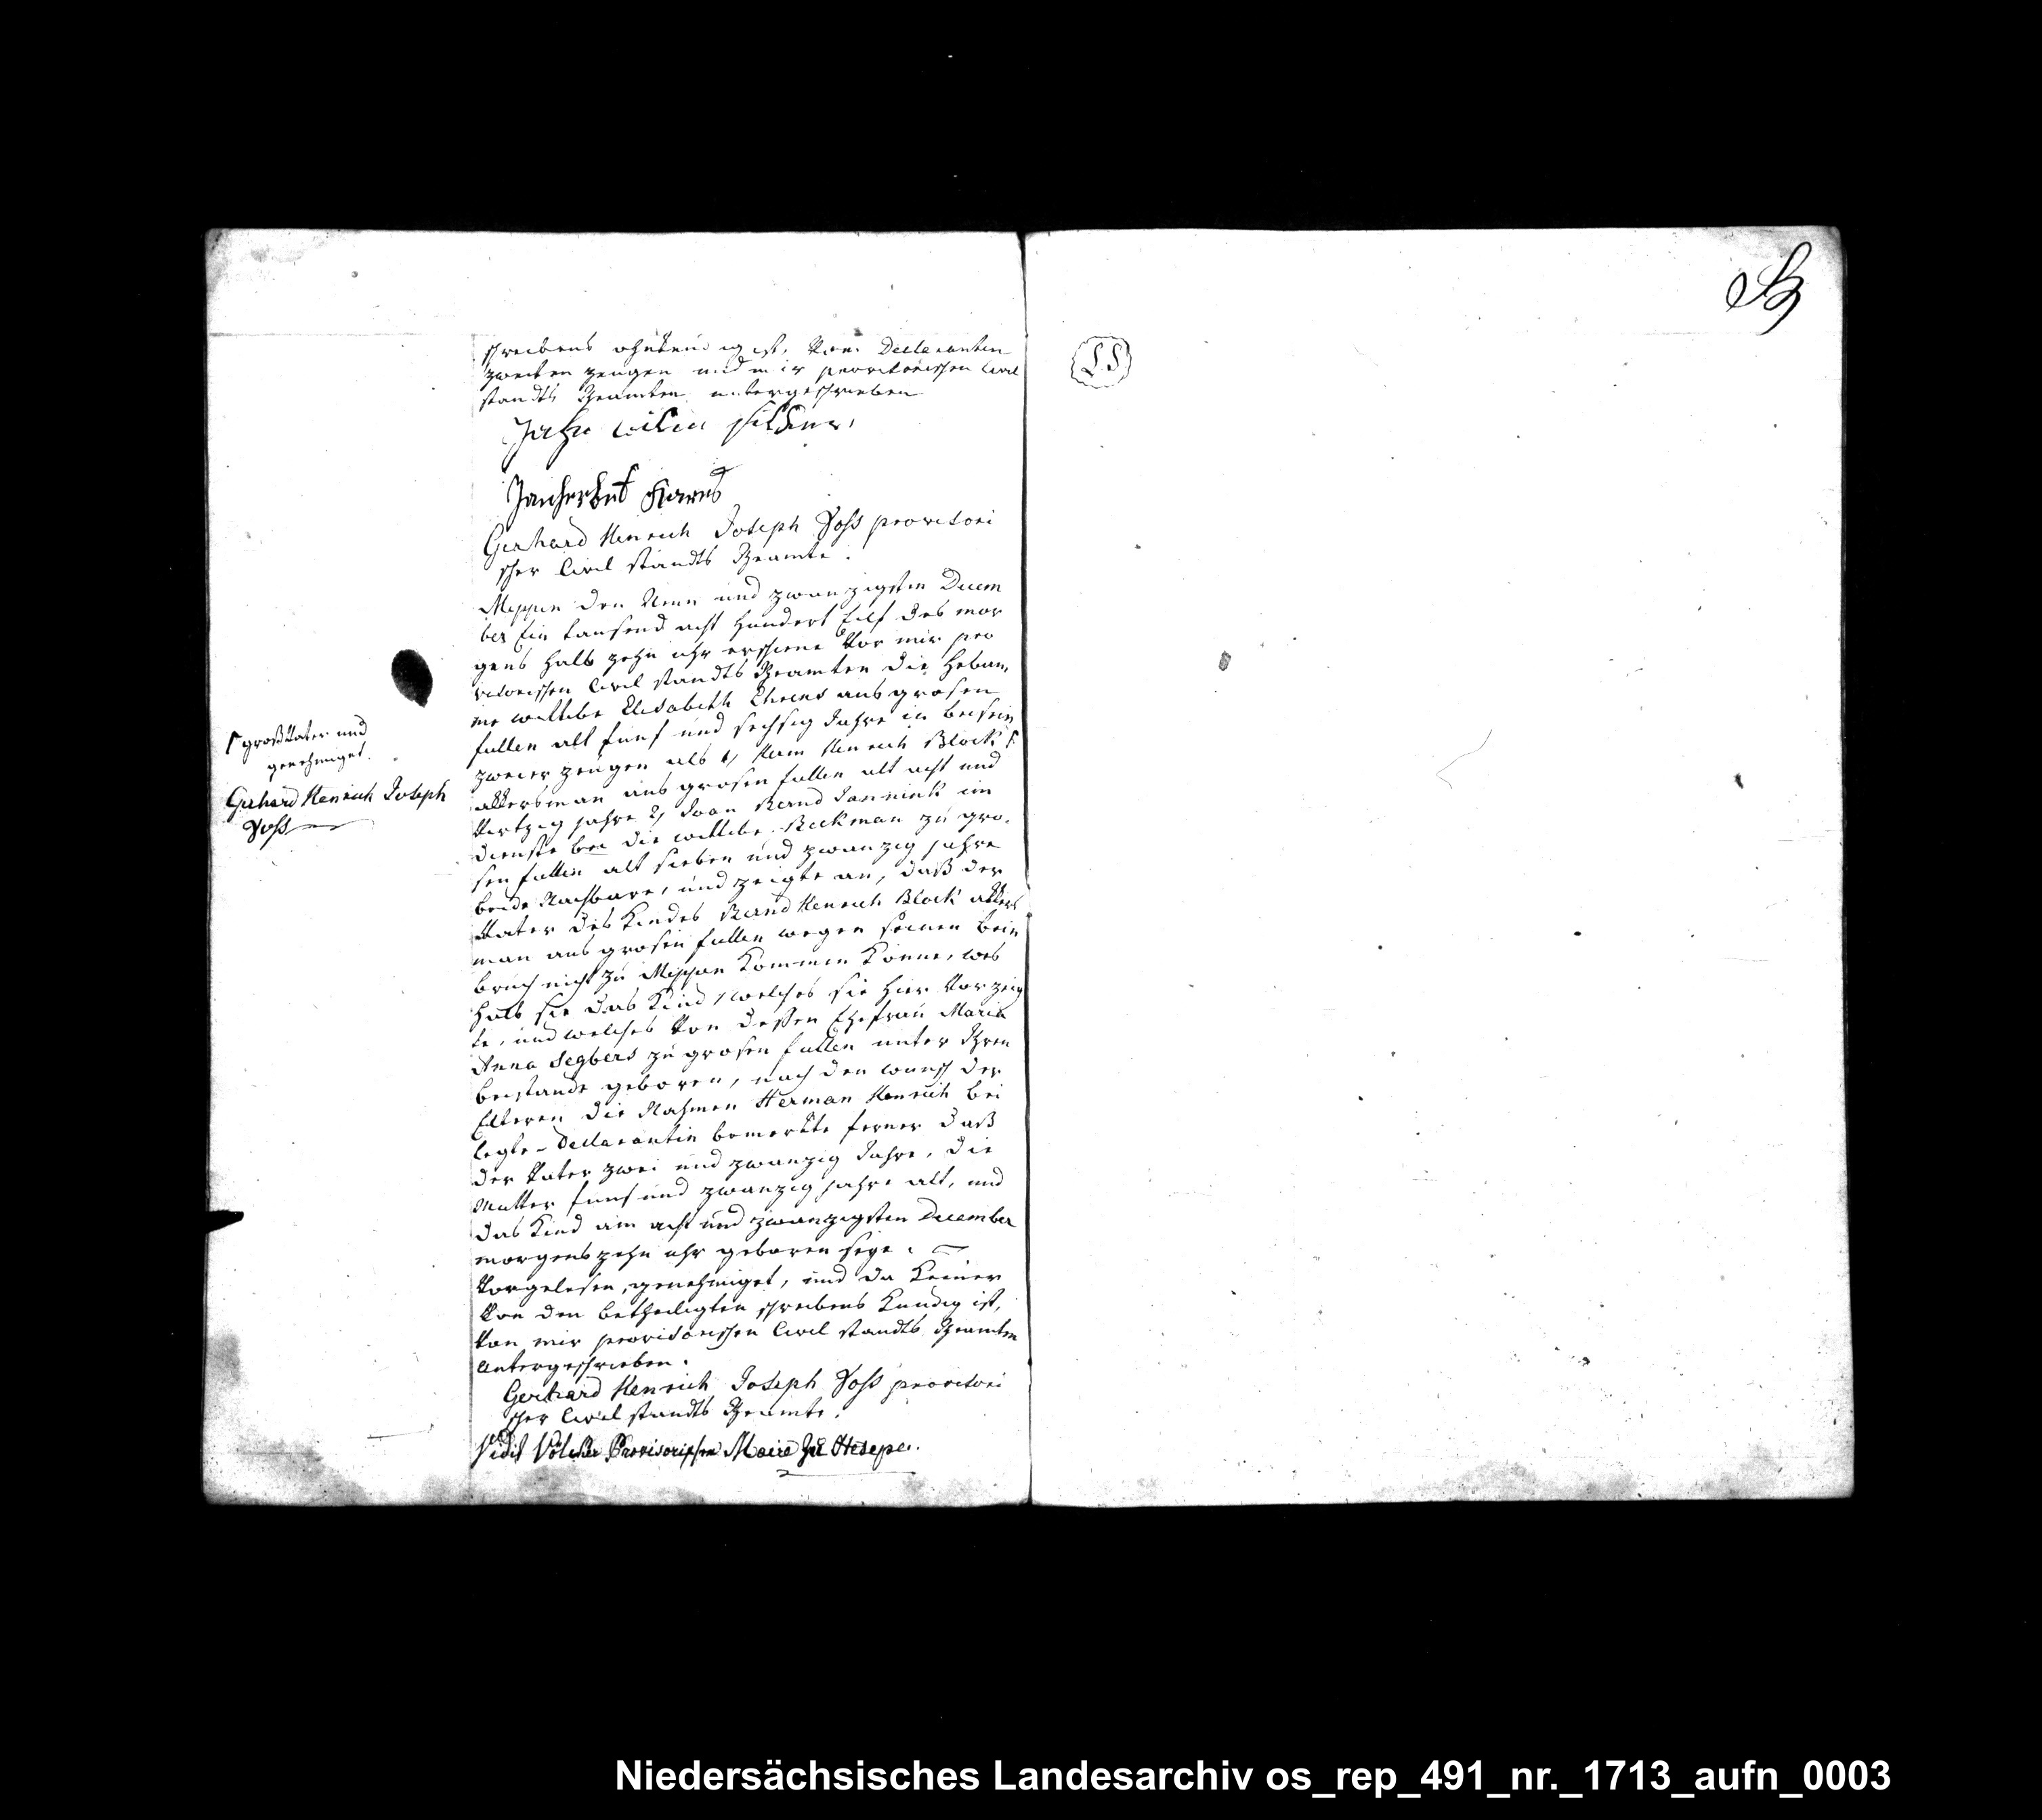 schreibens ohnkundig ist, von Declarantin
zweiten zeugen und mir provisorischen Civil
standts Beamten untergeschrieben
Gerhard Henrich Joseph Voss provisori
scher Civil standts Beamte.
Meppen den Neun und zwanzigsten Decem
ber Ein tausend acht hundert Eilf des mor
gens halb zehn uhr erschiene vor mir pro
visorischen Civil standts Beamten die Heban,
me wittibe Elisabeth aus grosen
fullen alt funf und sechsig Jahre in beisein
zweier zeugen als 1, Herm Henrich Block
akkersman aus grosen fullen alt acht und
viertzig jahre 2, Joan Bernd Jannink im
dienste bei die wittibe Beckman zu gro,
sen fullen alt sieben und zwanzig jahre
beide Nachbare, und zeigte an, daß der
Vater des Kindes Bernd Henrich Block akkers
man aus grosen fullen wegen seinen bein
bruch nicht zu Meppen kommen könne, wes
halb sie das Kind welches sie hier vorzeig
te, und welches von dessen Ehefrau Maria
Anna Segbers zu grosen fullen unter Ihren
beistande geboren, nach den wunsch der
Elteren die Nahmen Herman Henrich bei
legte - Declarantin bemerkte ferner daß
der Vater zwei und zwanzig Jahre, die
Mutter funf und zwanzig jahre alt, und
das Kind am acht und zwanzigsten December
morgens zehn uhr geboren seye.
Vorgelesen, genehmiget, und da keiner
von den betheiligten schreibens kundig ist,
von mir provisorischen Civil standts Beamten
untergeschrieben.
Gerhard Henrich Joseph Voss provisori
scher Civil standts Beamte.
Vidit Provisorischer Maire zu Hesepe.
großvater und
genehmiget.
Gerhard Henrich Joseph
Voss
LS
Niedersächsisches Landesarchiv os_rep_491_nr._1713_aufn_0003